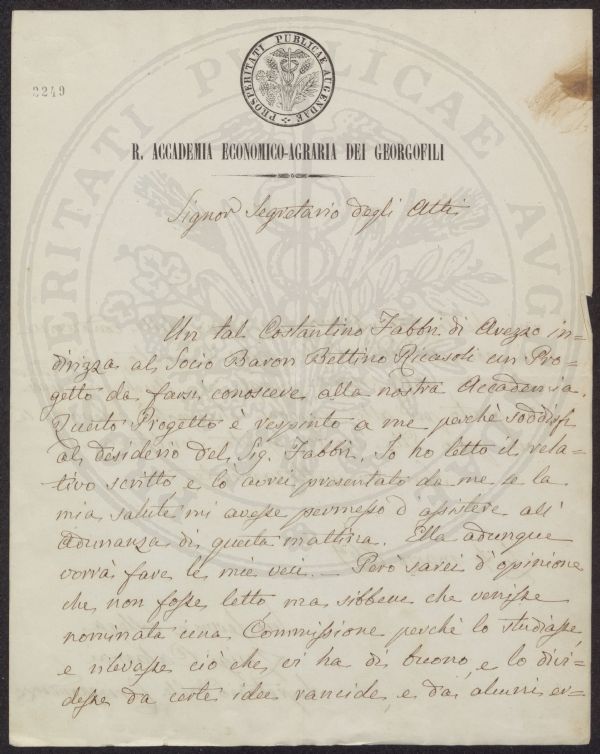 PROSPERITATI PUBLICAE AUGENDAE
2249
R. ACCADEMIA ECONOMICO-AGRARIA DEI GEORGOFILI
Signor Segretario degli Atti
Un tal Costantino Fabbri di Arezzo in=
dirizza al Socio Baron Bettino Ricasoli un Pro=
getto da farsi conoscere alla nostra Accademia.
Questo Progetto è respinto a me perchè soddisfi
al desiderio del Sig. Fabbri. Io ho letto il rela=
tivo scritto e lo avrei presentato da me se la
mia salute mi avesse permesso d assistere all'
adunanza di questa mattina. Ella adunque
vorrà fare le mie veci. — Però sarei d'opinione
che non fosse letto ma sibbene che venisse
nominata una Commissione perchè lo studiasse,
e rilevasse ciò che vi ha di buono, e lo divi=
desse da certe idee rancide, e da alcuni er=